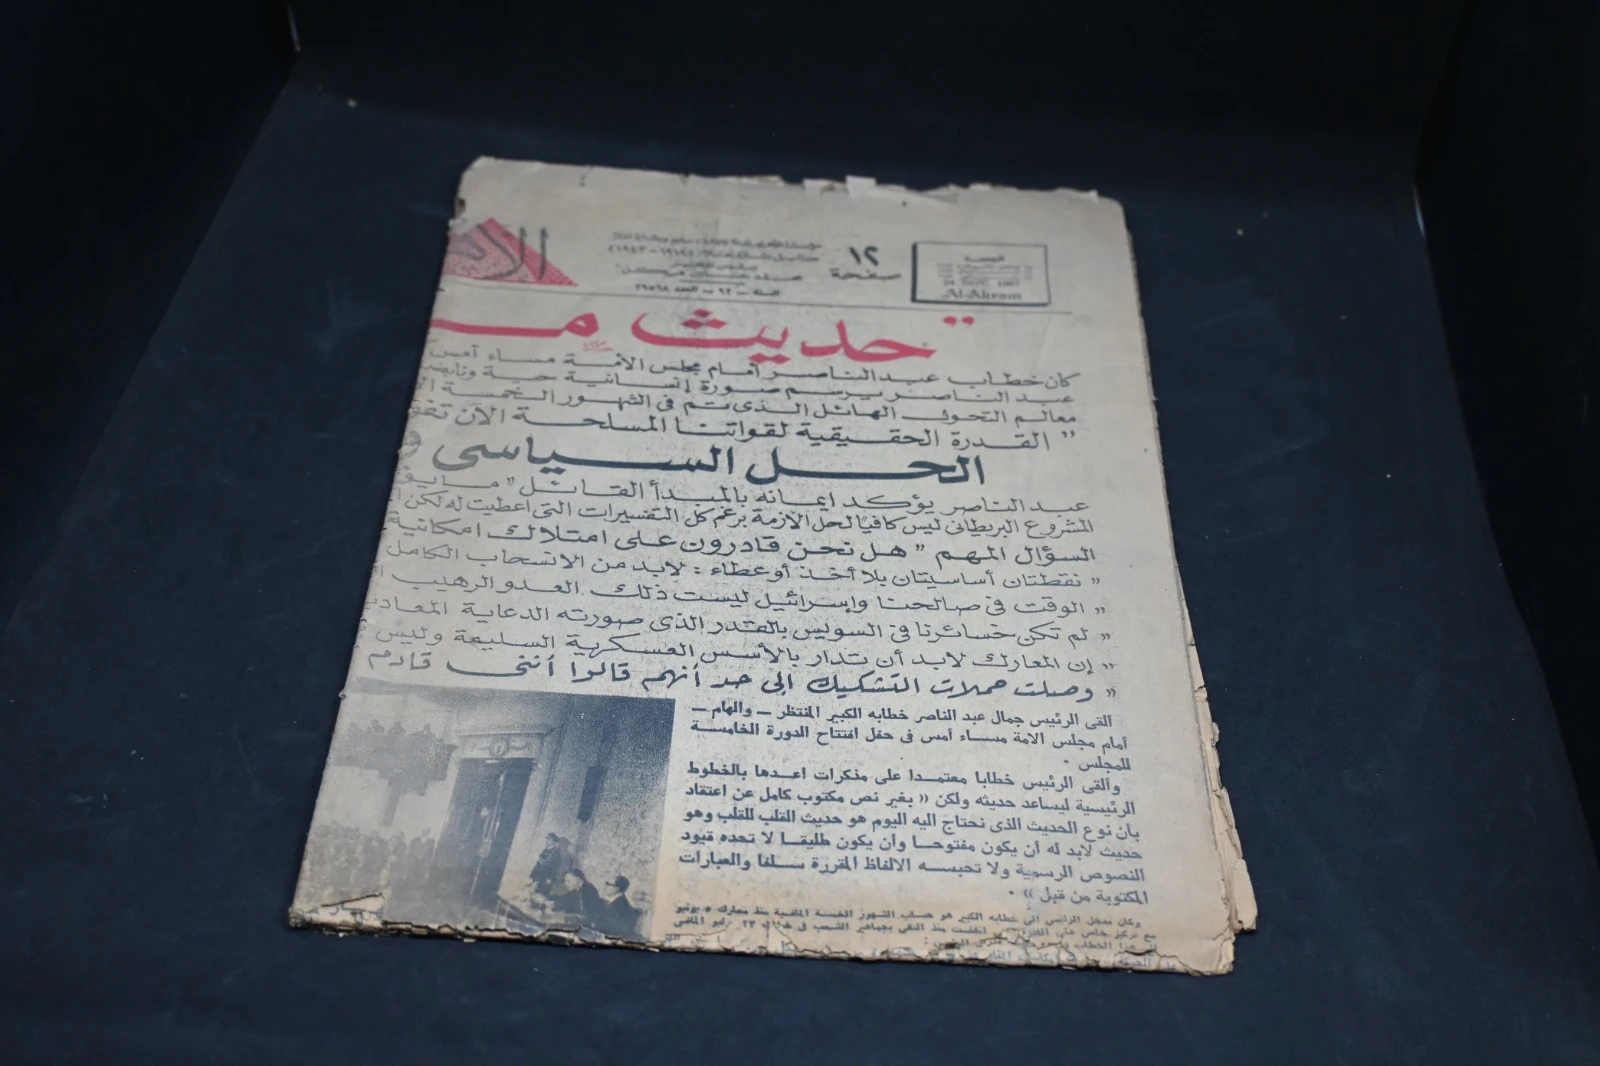 الجمعة
24 NOV. 1967
Al-Ahram
١٢
صفحة
السنة ــ ٩٣ ــ العدد ٢٩٥٦٨
الا
" حديث مـ
كان خطاب عبد الناصر أمام مجلس الأمة مساء أمس
عبد الناصر يرسم صورة إنسانية حية
معالم التحول الهائل الذى تم فى الشهور الخمسة
" القدرة الحقيقية لقواتنا المسلحة الآن تفو
الحل السياسى
عبد الناصر يؤكد ايمانه بالمبدأ القائل " ما
المشروع البريطانى ليس كافيا لحل الازمة برغم كل التفسيرات التى أعطيت له لكن
السؤال المهم " هل نحن قادرون على امتلاك امكانية
" نقطتان أساسيتان بلا أخذ أو عطاء : لابد من الانسحاب الكامل
" الوقت فى صالحنا وإسرائيل ليست ذلك العدو الرهيب
" لم تكن خسائرنا فى السويس بالقدر الذى صورته الدعاية المعاد
" إن المعارك لابد أن تدار بالأسس العسكرية السليمة وليس
" وصلت حملات التشكيك الى حد أنهم قالوا أننى قادم
ألقى الرئيس جمال عبد الناصر خطابه الكبير المنتظر ــ والهام ــ
أمام مجلس الامة مساء أمس فى حفل افتتاح الدورة الخامسة
للمجلس .
وألقى الرئيس خطابا معتمدا على مذكرات اعدها بالخطوط
الرئيسية ليساعد حديثه ولكن « بغير نص مكتوب كامل عن اعتقاد
بأن نوع الحديث الذى نحتاج اليه اليوم هو حديث القلب للقلب وهو
حديث لابد له أن يكون مفتوحا وأن يكون طليقا لا تحده قيود
النصوص الرسمية ولا تحبسه الالفاظ المقررة سلفا والعبارات
المكتوبة من قبل » .
وكان مدخل الرئيس الى خطابه الكبير هو حساب الشهور الخمسة الماضية منذ معارك ٥ يونيو